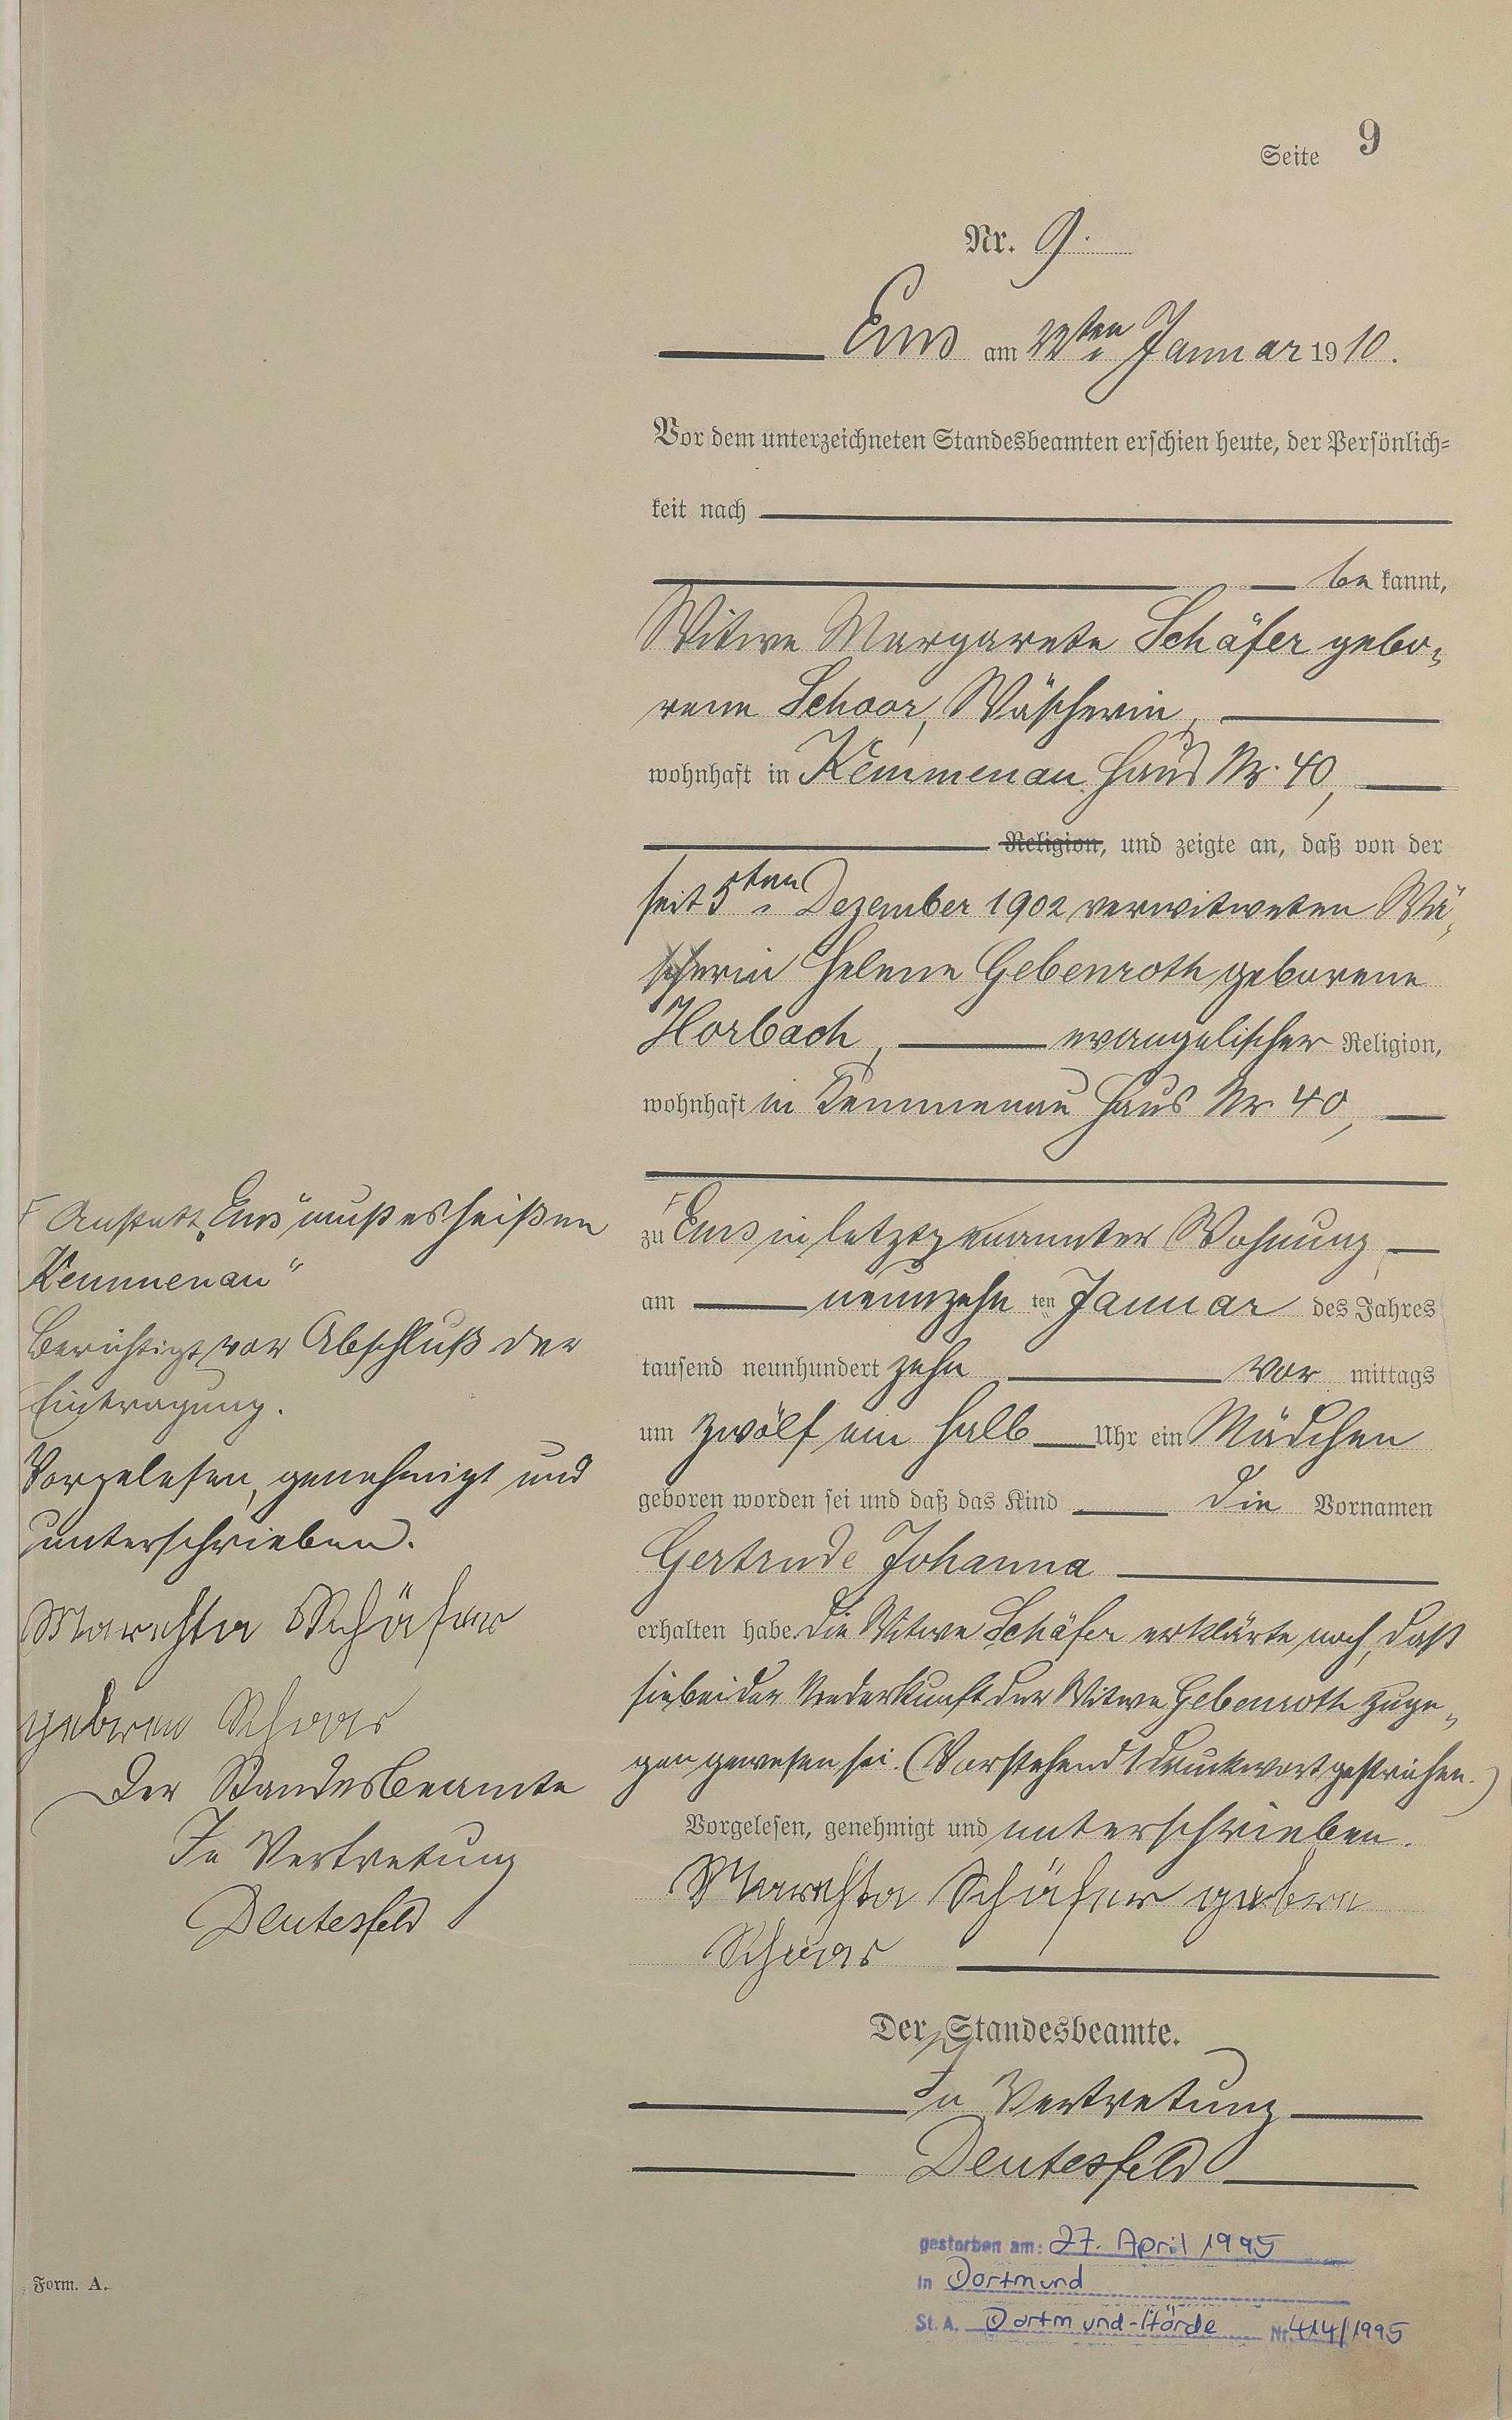 Seite 9
Nr. 9.
Ems am 22ten Januar 1910.
Vor dem unterzeichneten Standesbeamten erschien heute, der Persönlich-
keit nach
bekannt,
Witwe Margarete Schäfer gebo-
rene Schoor, Wäscherin,
wohnhaft in Kemmenau Haus Nr. 40,
Religion, und zeigte an, daß von der
seit 5ten Dezember 1902 verwitweten Wä-
scherin Helene Gebenroth geborene
Horbach, evangelischer Religion,
wohnhaft in Kemmenau Haus Nr. 40,
zu Ems in letztgenannter Wohnung
am neunzehn ten Januar des Jahres
tausend neunhundert zehn vor mittags
um zwölf ein halb Uhr ein Mädchen
geboren worden sei und daß das Kind die Vornamen
Gertrude Johanna
erhalten habe. Die Witwe Schäfer erklärte noch, daß
sie bei der Niederkunft der Witwe Gebenroth zuge-
gen gewesen sei. (Vorstehend 1 Druckwort gestrichen.)
Vorgelesen, genehmigt und unterschrieben.
Schäfer
Der Standesbeamte.
In Vertretung
Deutesfeld
gestorben am: 27. April 1995
in Dortmund
St. A. Dortmund-Hörde Nr. 414/1995
Anstatt „Ems" muß es heißen
Kemmenau"
Berichtigt vor Abschluß der
Eintragung.
Vorgelesen, genehmigt und
unterschrieben.
Schäfer
Der Standesbeamte
In Vertretung
Deutesfeld
Form. A.